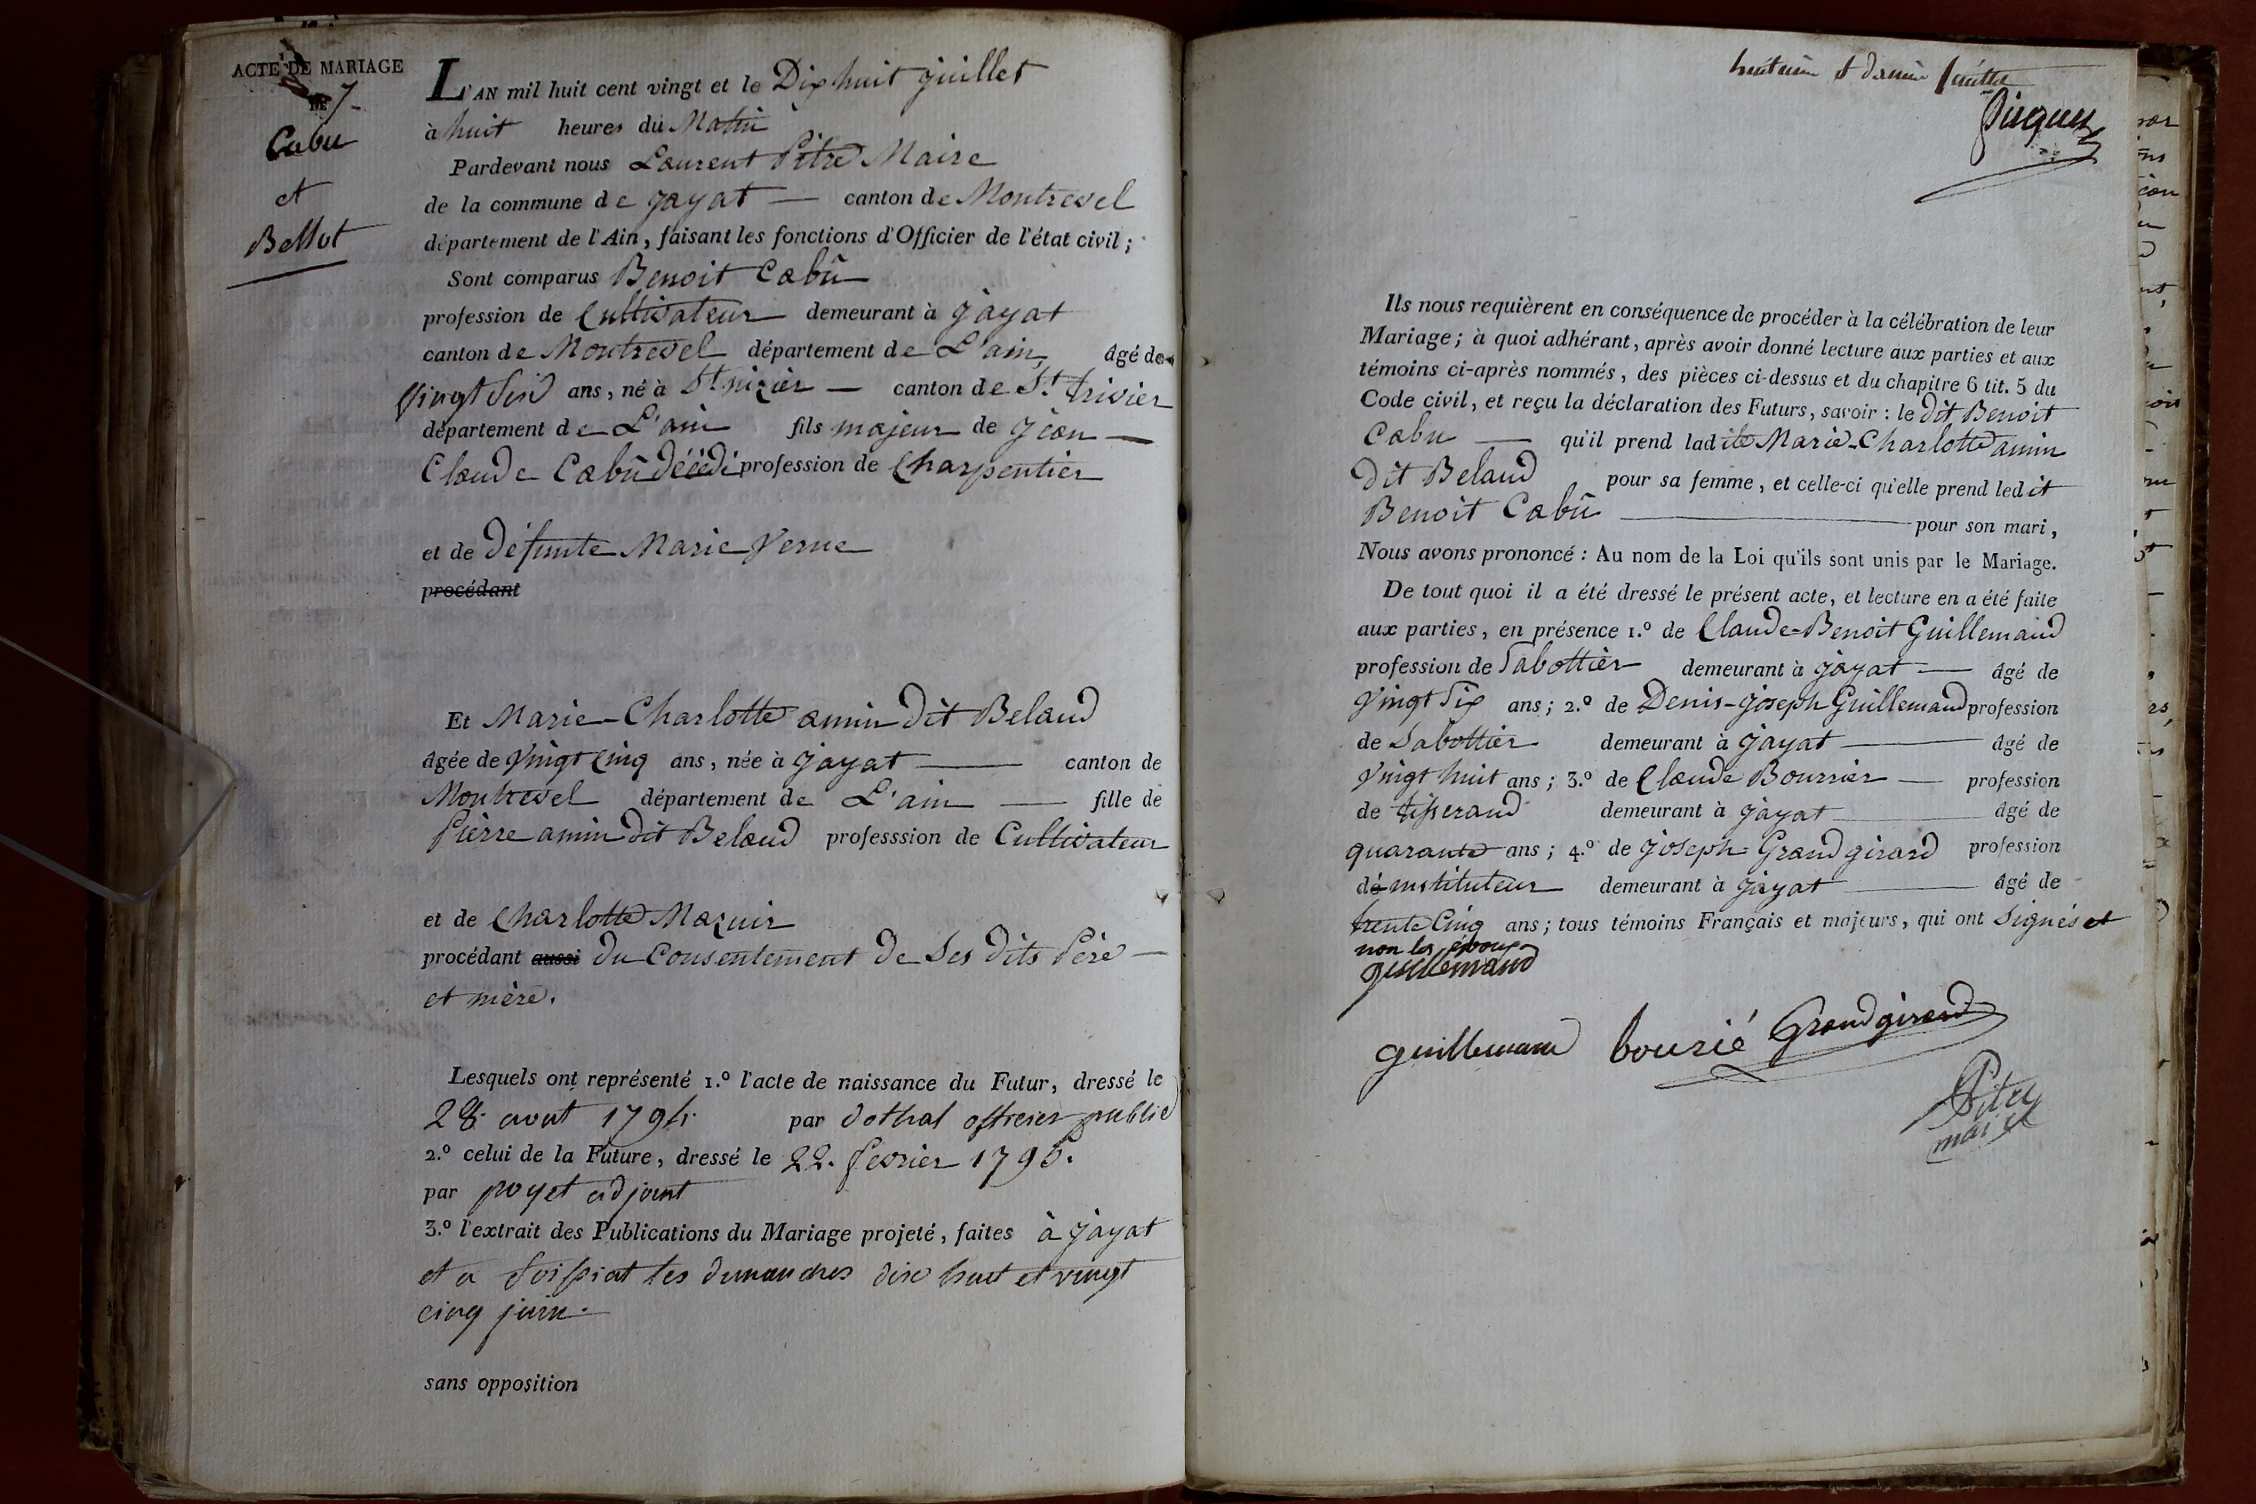 ACTE DE MARIAGE
DE 7
Cabu
et
Bellot
L'AN mil huit cent vingt et le Dix huit juillet
à huit heures du Matin
Pardevant nous Laurent Pitre Maire
de la commune de jayat — canton de Montrevel
département de l'Ain, faisant les fonctions d'Officier de l'état civil;
Sont comparus Benoit Cabû
profession de Cultivateur demeurant à jayat
canton de Montrevel département de L'ain, âgé de
Vingt Six ans, né à St. nizier — canton de St. trivier
département de L'ain fils majeur de jean —
Claude Cabû profession de Charpentier
et de défunte Marie Verne
procédant
Et Marie-Charlotte amin dit Belaud
âgée de Vingt Cinq ans, née à jayat — canton de
Montrevel département de L'ain — fille de
Pierre amin dit Belaud professsion de Cultivateur
et de Charlotte Mazuir
procédant aussi du Consentement de Ses dits Père —
et mère.
Lesquels ont représenté 1.º l'acte de naissance du Futur, dressé le
28 aout 1794 par officier public
2.º celui de la Future, dressé le 22. fevrier 1795.
par poyet adjoint
3.º l'extrait des Publications du Mariage projeté, faites à jayat
et a foissiat les dimanches dix huit et vingt
cinq juin.
sans opposition
huitieme et dernier feuillet
Ils nous requièrent en conséquence de procéder à la célébration de leur
Mariage; à quoi adhérant, après avoir donné lecture aux parties et aux
témoins ci-après nommés, des pièces ci-dessus et du chapitre 6 tit. 5 du
Code civil, et reçu la déclaration des Futurs, savoir: le dit Benoit
Cabu — qu'il prend ladite Marie-Charlotte amin
dit Belaud pour sa femme, et celle-ci qu'elle prend ledit
Benoit Cabû — pour son mari,
Nous avons prononcé: Au nom de la Loi qu'ils sont unis par le Mariage.
De tout quoi il a été dressé le présent acte, et lecture en a été faite
aux parties, en présence 1.º de Claude-Benoit Guillemaud
profession de Sabottier demeurant à jayat — âgé de
Vingt Six ans; 2.º de Denis-joseph Guillemaud profession
de Sabottier demeurant à jayat — âgé de
Vingt huit ans; 3.º de Claude Bourrier — profession
de tisserand demeurant à jayat — âgé de
quarante ans; 4.º de joseph Grandgirard profession
dé instituteur demeurant à jayat — âgé de
trente Cinq ans; tous témoins Français et majeurs, qui ont Signés et
non les époux
guillemaud
guillemaud bourié Grandgirard
Pitre
maire